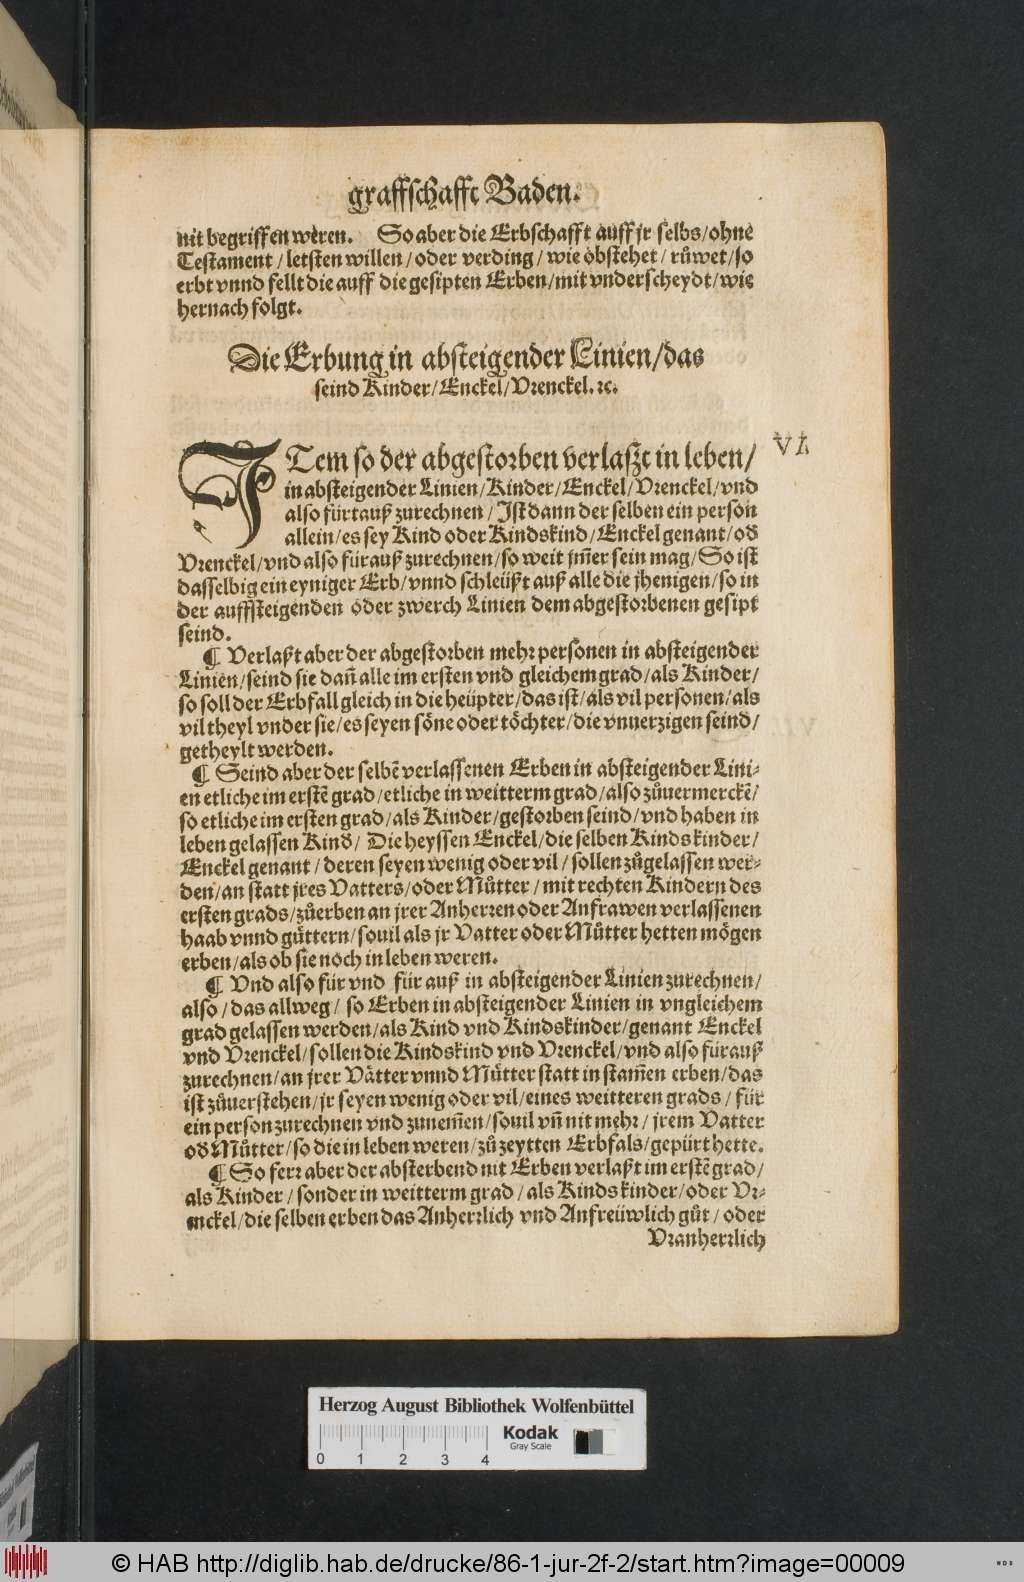 graffschafft Baden.
nit begriffen weren. So aber die Erbschafft auff jr selbs/ohne
Testament/letsten willen/oder verding/wie obstehet/růwet/so
erbt vnnd fellt die auff die gesipten Erben/mit vnderscheydt/wie
hernach folgt.
Die Erbung in absteigender Linien/das
seind Kinder/Enckel/Vrenckel.ꝛc.
ITem so der abgestorben verlaszt in leben/
VI
in absteigender Linien/Kinder/Enckel/Vrenckel/vnd
also fürtauß zurechnen/Ist dann der selben ein person
allein/es sey Kind oder Kindskind/Enckel genant/od
Vrenckel/vnd also fürauß zurechnen/so weit jm̃er sein mag/So ist
dasselbig ein eyniger Erb/vnnd schleüßt auß alle die jhenigen/so in
der auffsteigenden oder zwerch Linien dem abgestorbenen gesipt
seind.
¶ Verlaßt aber der abgestorben mehr personen in absteigender
Linien/seind sie dañ alle im ersten vnd gleichem grad/als Kinder/
so soll der Erbfall gleich in die heüpter/das ist/als vil personen/als
vil theyl vnder sie/es seyen söne oder töchter/die vnuerzigen seind/
getheylt werden.
¶ Seind aber der selbẽ verlassenen Erben in absteigender Lini-
en etliche im erstẽ grad/etliche in weitterm grad/also zůuermerckẽ/
so etliche im ersten grad/als Kinder/gestorben seind/vnd haben in
leben gelassen Kind/Die heyssen Enckel/die selben Kindskinder/
Enckel genant/deren seyen wenig oder vil/sollen zůgelassen wer-
den/an statt jres Vatters/oder Můtter/mit rechten Kindern des
ersten grads/zůerben an jrer Anherren oder Anfrawen verlassenen
haab vnnd güttern/souil als jr Vatter oder Můtter hetten mögen
erben/als ob sie noch in leben weren.
¶ Vnd also für vnd für auß in absteigender Linien zurechnen/
also/das allweg/so Erben in absteigender Linien in vngleichem
grad gelassen werden/als Kind vnd Kindskinder/genant Enckel
vnd Vrenckel/sollen die Kindskind vnd Vrenckel/vnd also fürauß
zurechnen/an jrer Vätter vnnd Můtter statt in stam̃en erben/das
ist zůuerstehen/jr seyen wenig oder vil/eines weitteren grads/für
ein person zurechnen vnd zunem̃en/souil vñ nit mehr/jrem Vatter
od Můtter/so die in leben weren/zů zeytten Erbfals/gepürt hette.
¶ So ferr aber der absterbend nit Erben verlaßt im erstẽ grad/
als Kinder/sonder in weitterm grad/als Kindskinder/oder Vr-
enckel/die selben erben das Anherrlich vnd Anfreüwlich gůt/oder
Vranherrlich
Herzog August Bibliothek Wolfenbüttel
Kodak
Gray Scale
0 1 2 3 4
© HAB http://diglib.hab.de/drucke/86-1-jur-2f-2/start.htm?image=00009